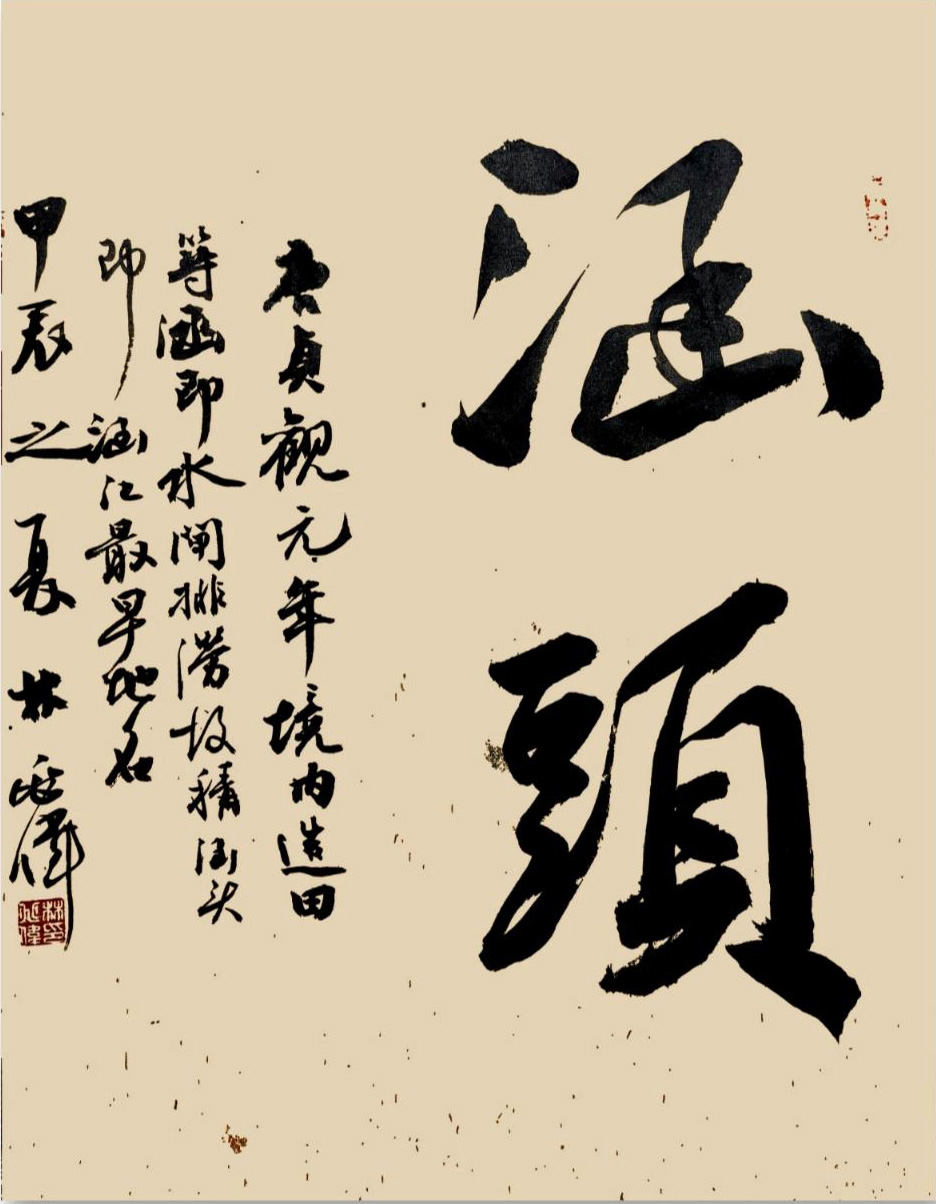 涵頭
唐貞觀元年境内造田
等涵即水闸排澇故稱涵头
即涵江最早地名
甲辰之夏 林延偉
林印延偉